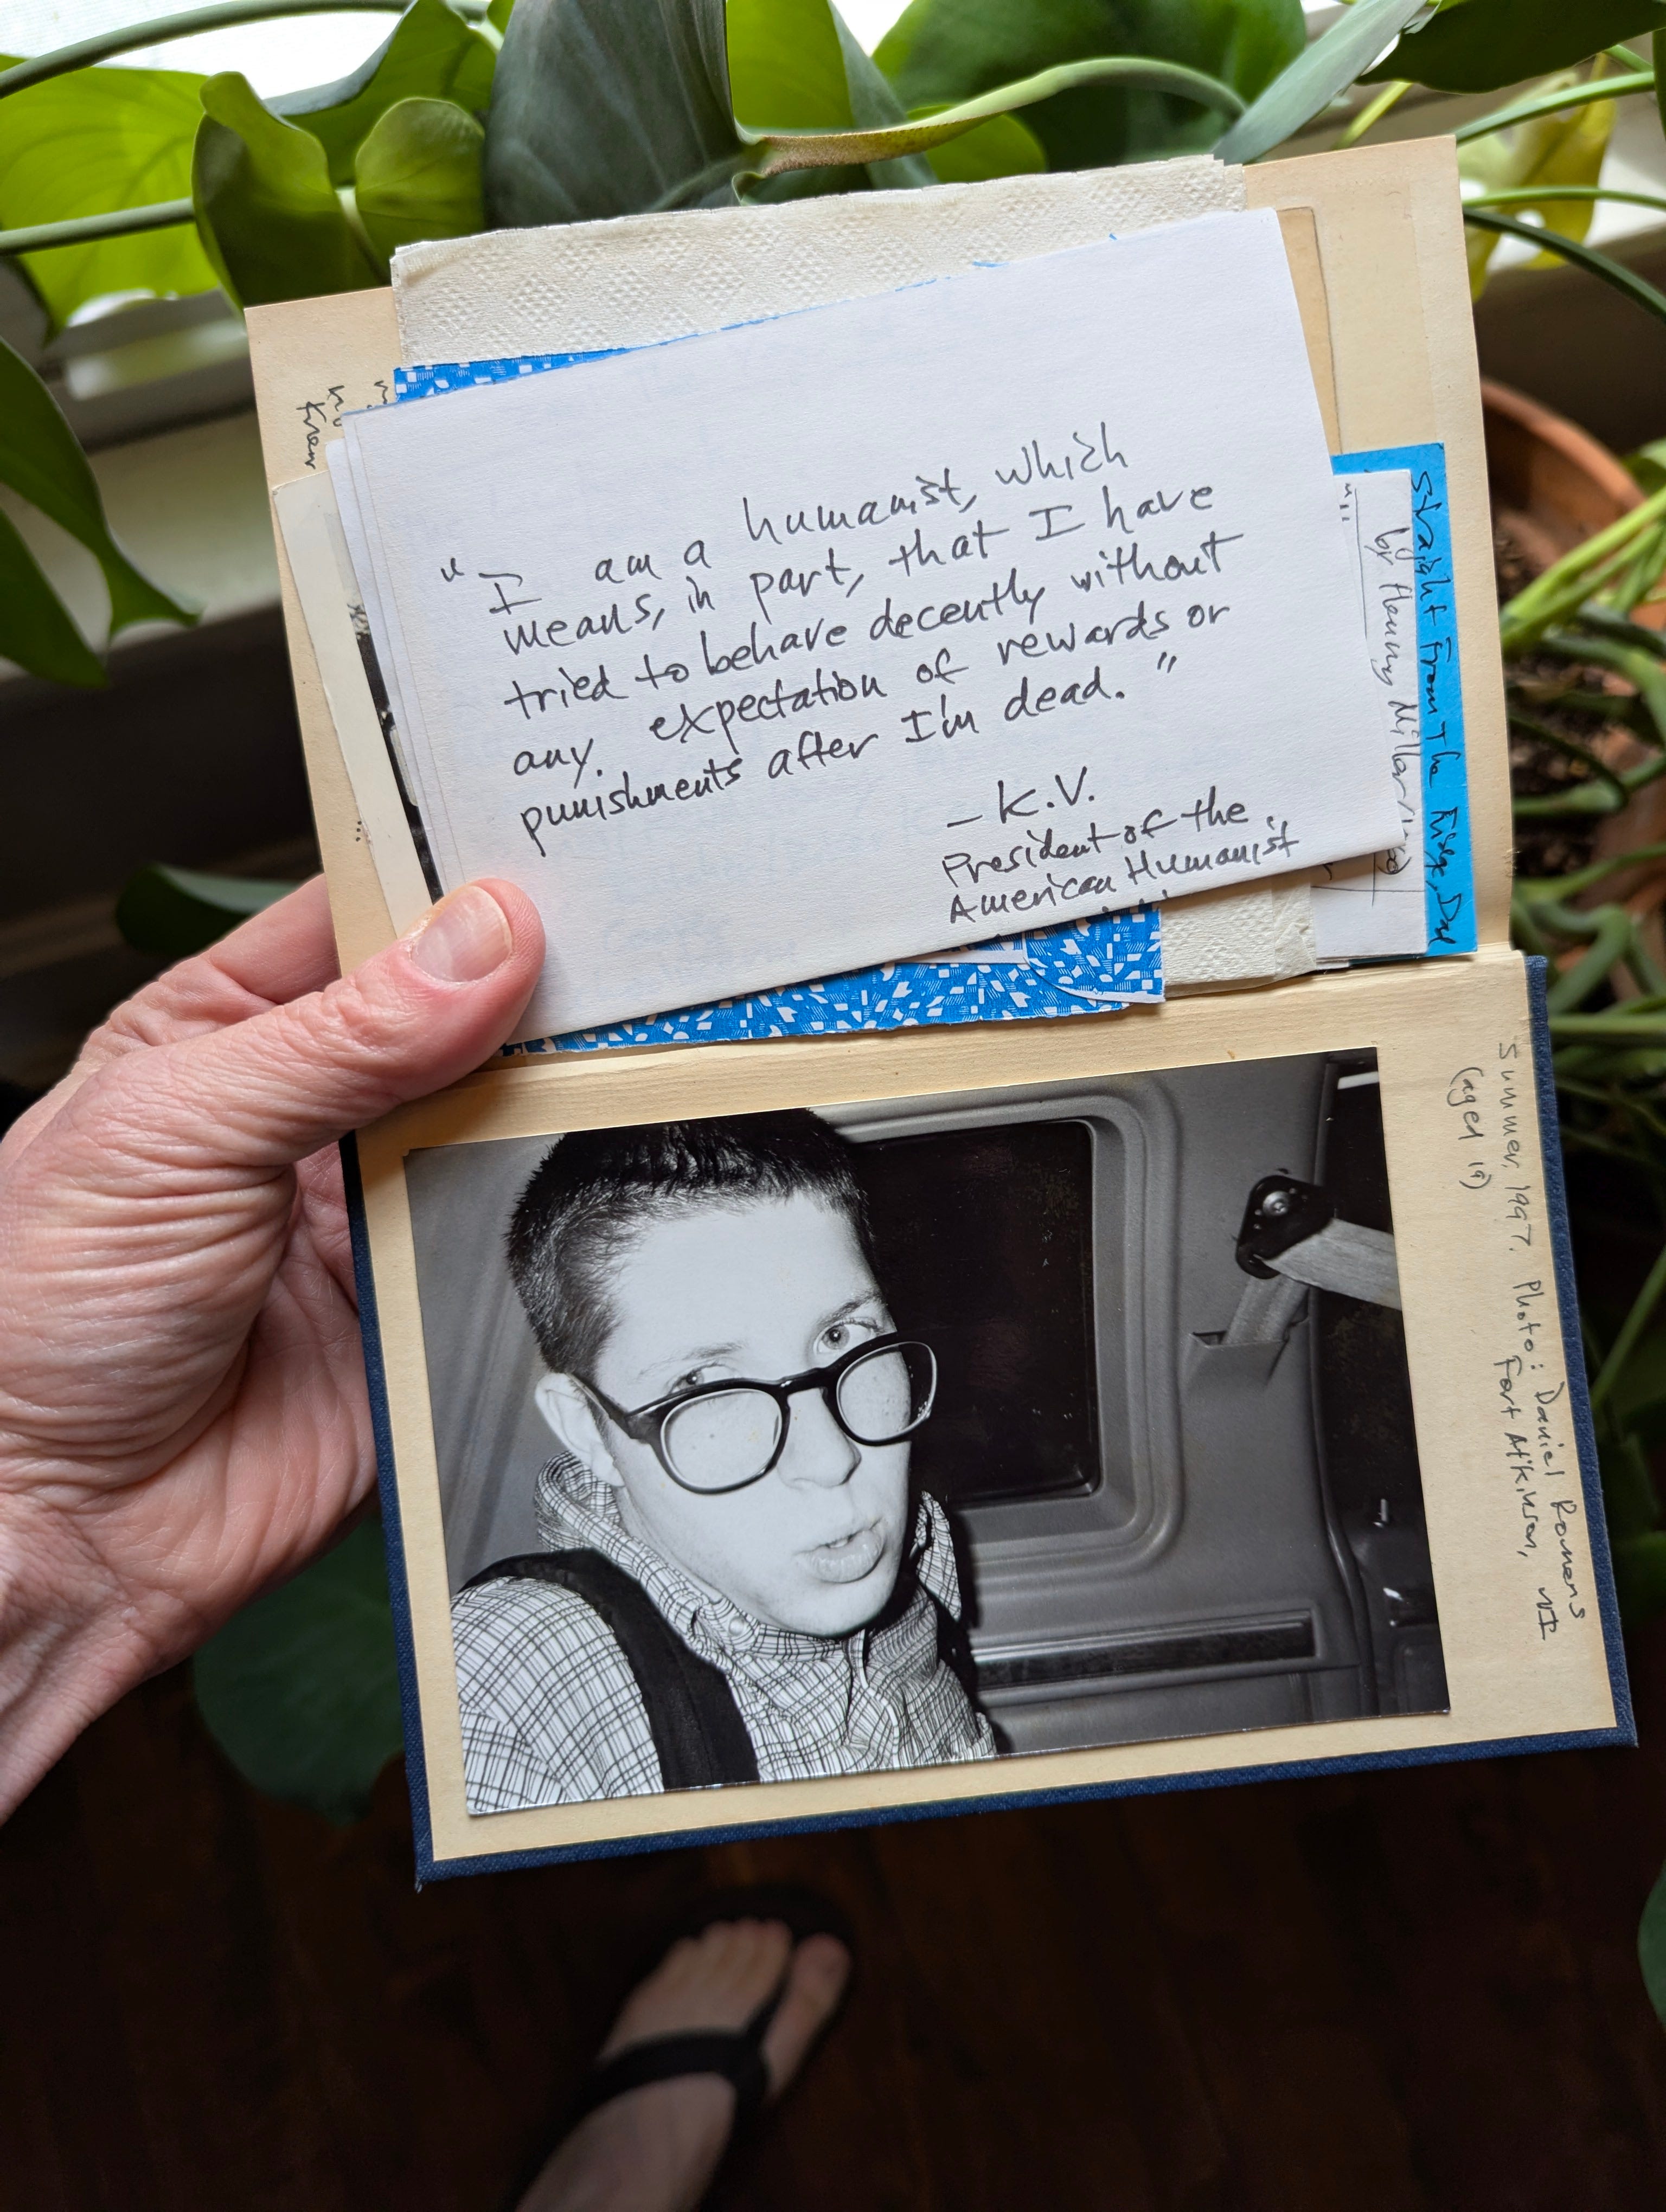 "I am a humanist, which
means, in part, that I have
tried to behave decently without
any. expectation of rewards or
punishments after I'm dead."
— K.V.
President of the
American Humanist
Straight From The Fridge, Dad
by Henry Miller
Summer, 1997. Photo: Daniel Romens
(aged 19)
Fort Atkinson, WI